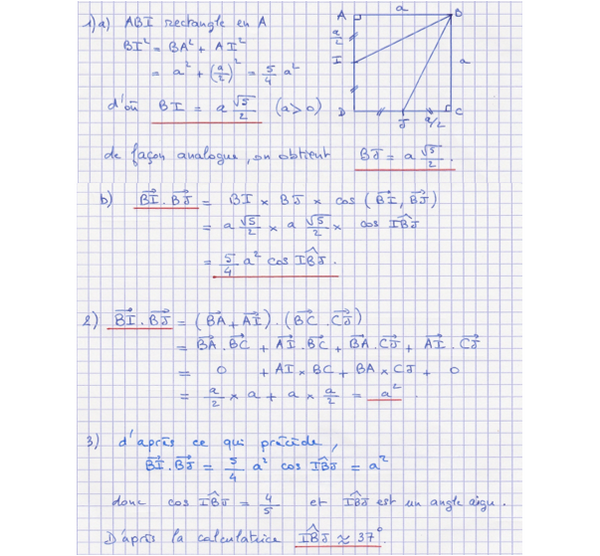 1) a) ABI rectangle en A
BI² = BA² + AI²
= a² + (a/2)² = 5/4 a²
d'où BI = a √5/2 (a>0)
A a B
a/2
I a
D J a/2 C
de façon analogue, on obtient BJ = a √5/2.
b) BI⃗ . BJ⃗ = BI × BJ × cos (BI⃗, BJ⃗)
= a √5/2 × a √5/2 × cos IB̂J
= 5/4 a² cos IB̂J.
2) BI⃗ . BJ⃗ = (BA⃗ + AI⃗) . (BC⃗ . CJ⃗)
= BA⃗ . BC⃗ + AI⃗ . BC⃗ + BA⃗ . CJ⃗ + AI⃗ . CJ⃗
= 0 + AI × BC + BA × CJ + 0
= a/2 × a + a × a/2 = a².
3) d'après ce qui précède,
BI⃗ . BJ⃗ = 5/4 a² cos IB̂J = a²
donc cos IB̂J = 4/5 et IB̂J est un angle aigu.
D'après la calculatrice IB̂J ≈ 37°.